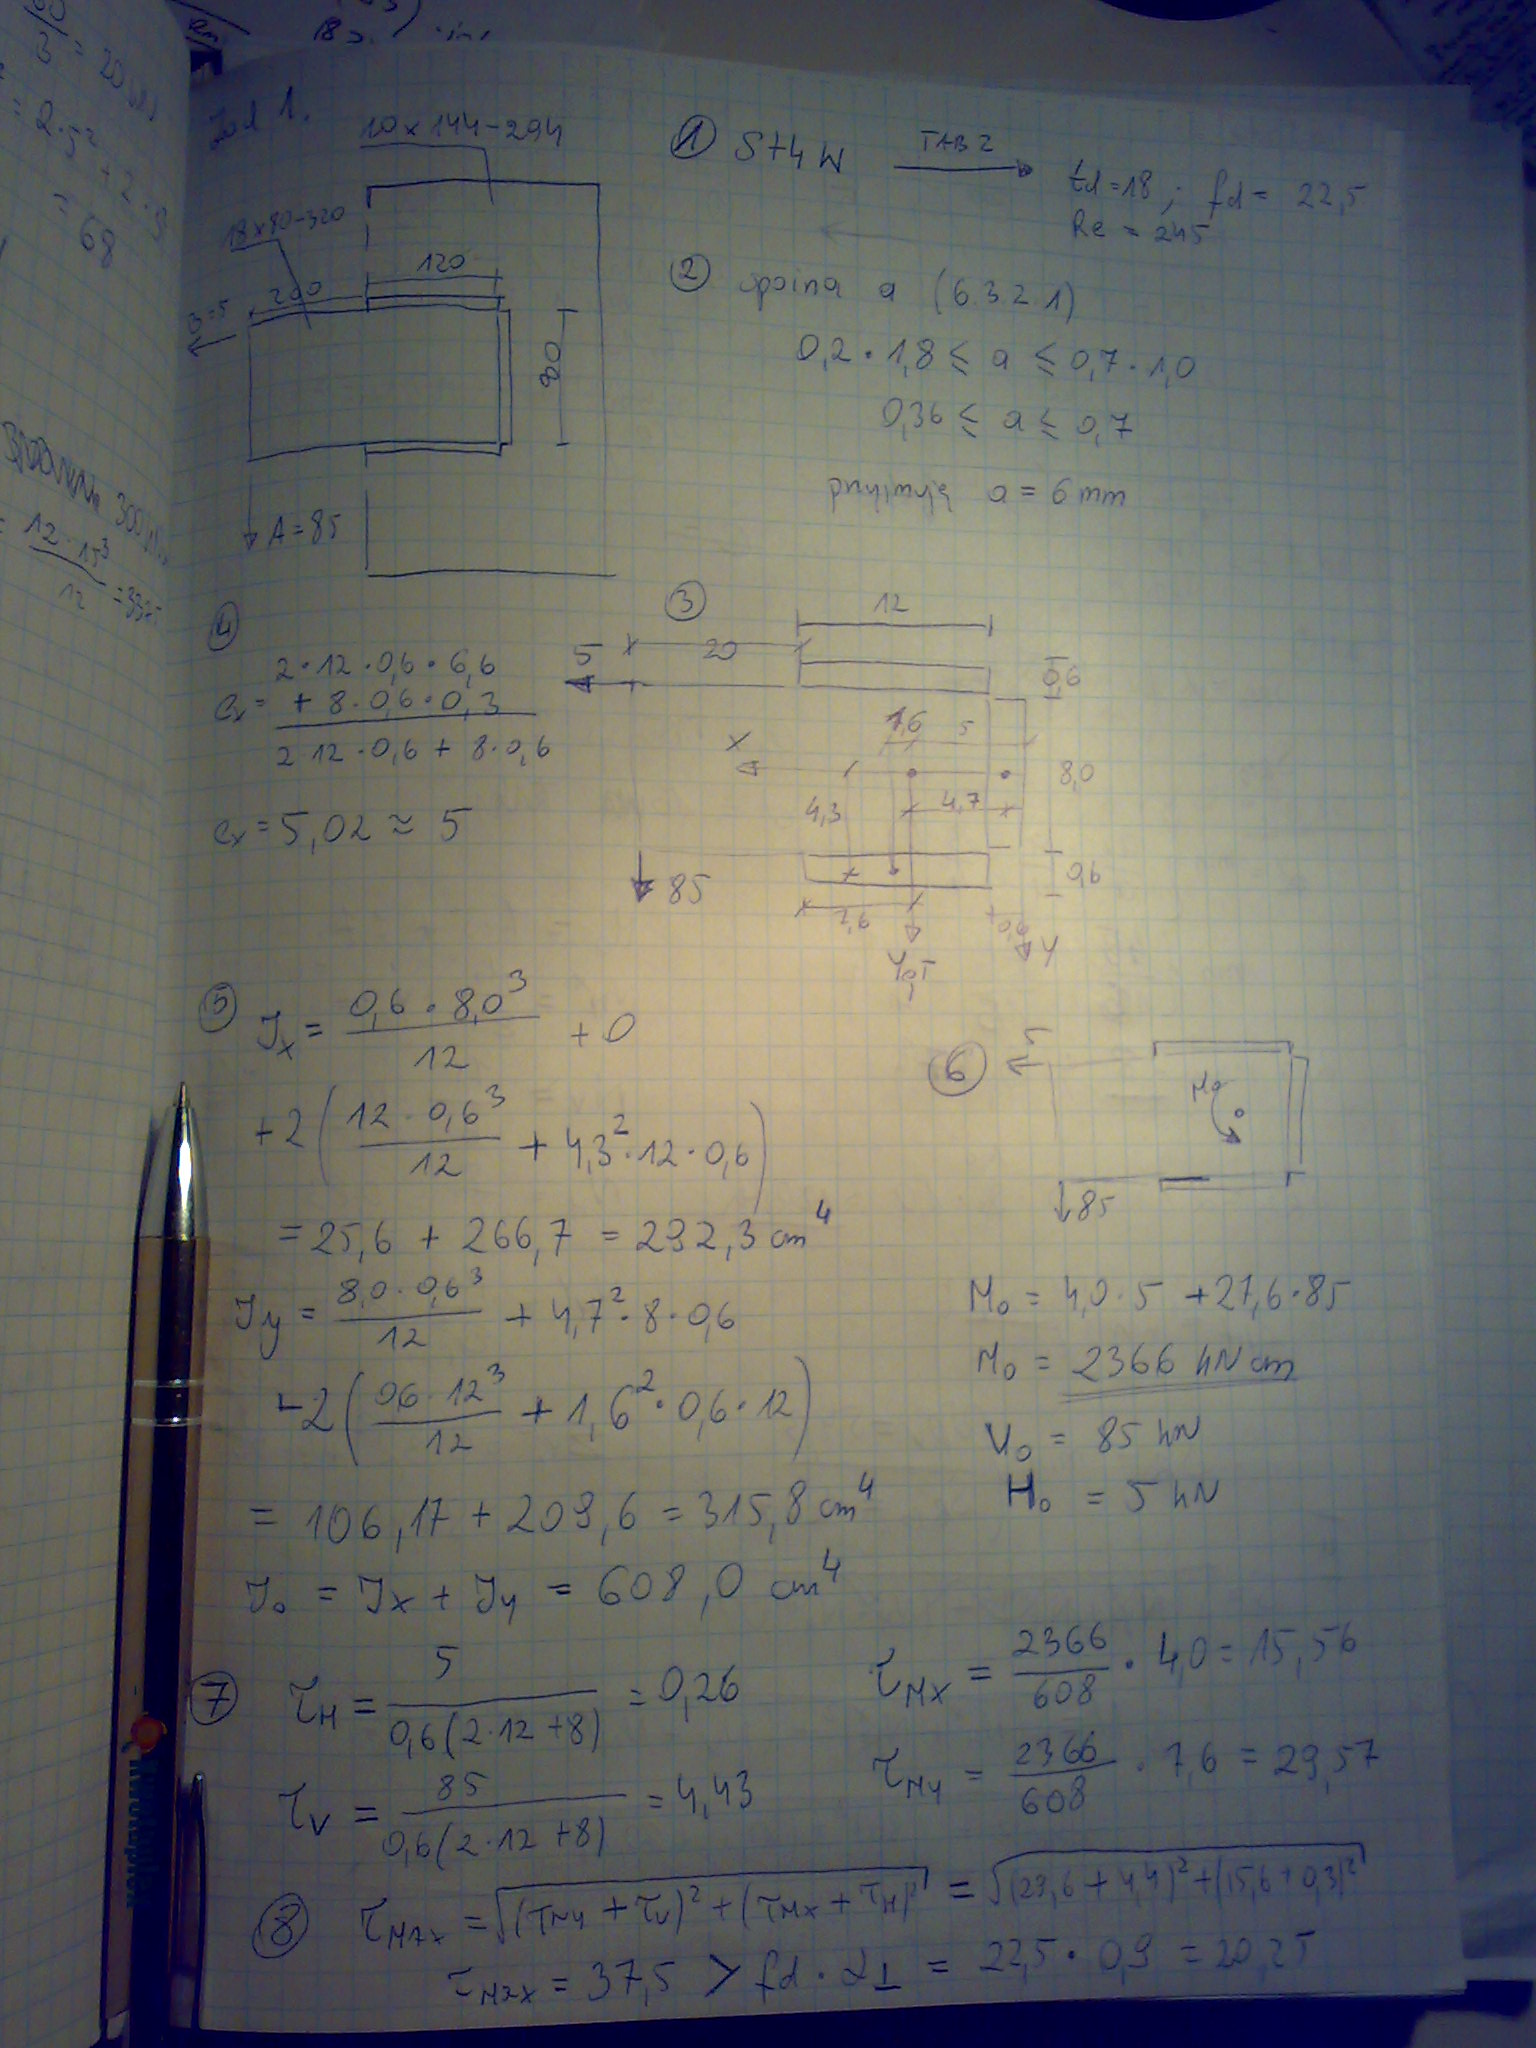 Zad 1.
10x144-294
18x80-320
120
200
B=5
80
A=85
① St4W TAB 2 td=18 ; fd = 22,5
Re = 245
② spoina a (6.3.2.1)
0,2 · 1,8 ≤ a ≤ 0,7 · 1,0
0,36 ≤ a ≤ 0,7
przyjmuję a = 6 mm
③
12
20
5
0,6
1,6 5
X
8,0
4,3 4,7
85
0,6
7,6
0,6
Y
④
ex = (2·12·0,6·6,6 + 8·0,6·0,3) / (2 12·0,6 + 8·0,6)
ex = 5,02 ≈ 5
⑤ Jx = 0,6 · 8,0³ / 12 + 0
+ 2 ( 12 · 0,6³ / 12 + 4,3²·12·0,6 )
= 25,6 + 266,7 = 292,3 cm⁴
Jy = 8,0·0,6³ / 12 + 4,7²·8·0,6
+2 ( 06·12³ / 12 + 1,6²·0,6·12 )
= 106,17 + 209,6 = 315,8 cm⁴
Jo = Jx + Jy = 608,0 cm⁴
⑥
5
Mo
85
Mo = 4,0·5 + 27,6·85
Mo = 2366 kN cm
Vo = 85 kN
Ho = 5 kN
⑦ τH = 5 / 0,6(2·12+8) = 0,26
τMx = 2366 / 608 · 4,0 = 15,56
τV = 85 / 0,6(2·12+8) = 4,43
τMy = 2366 / 608 · 7,6 = 29,57
⑧ τMAX = √(τMy + τV)² + (τMx + τH)² = √(29,6 + 4,4)² + (15,6 + 0,3)²
τMAX = 37,5 > fd · α⊥ = 22,5 · 0,9 = 20,25